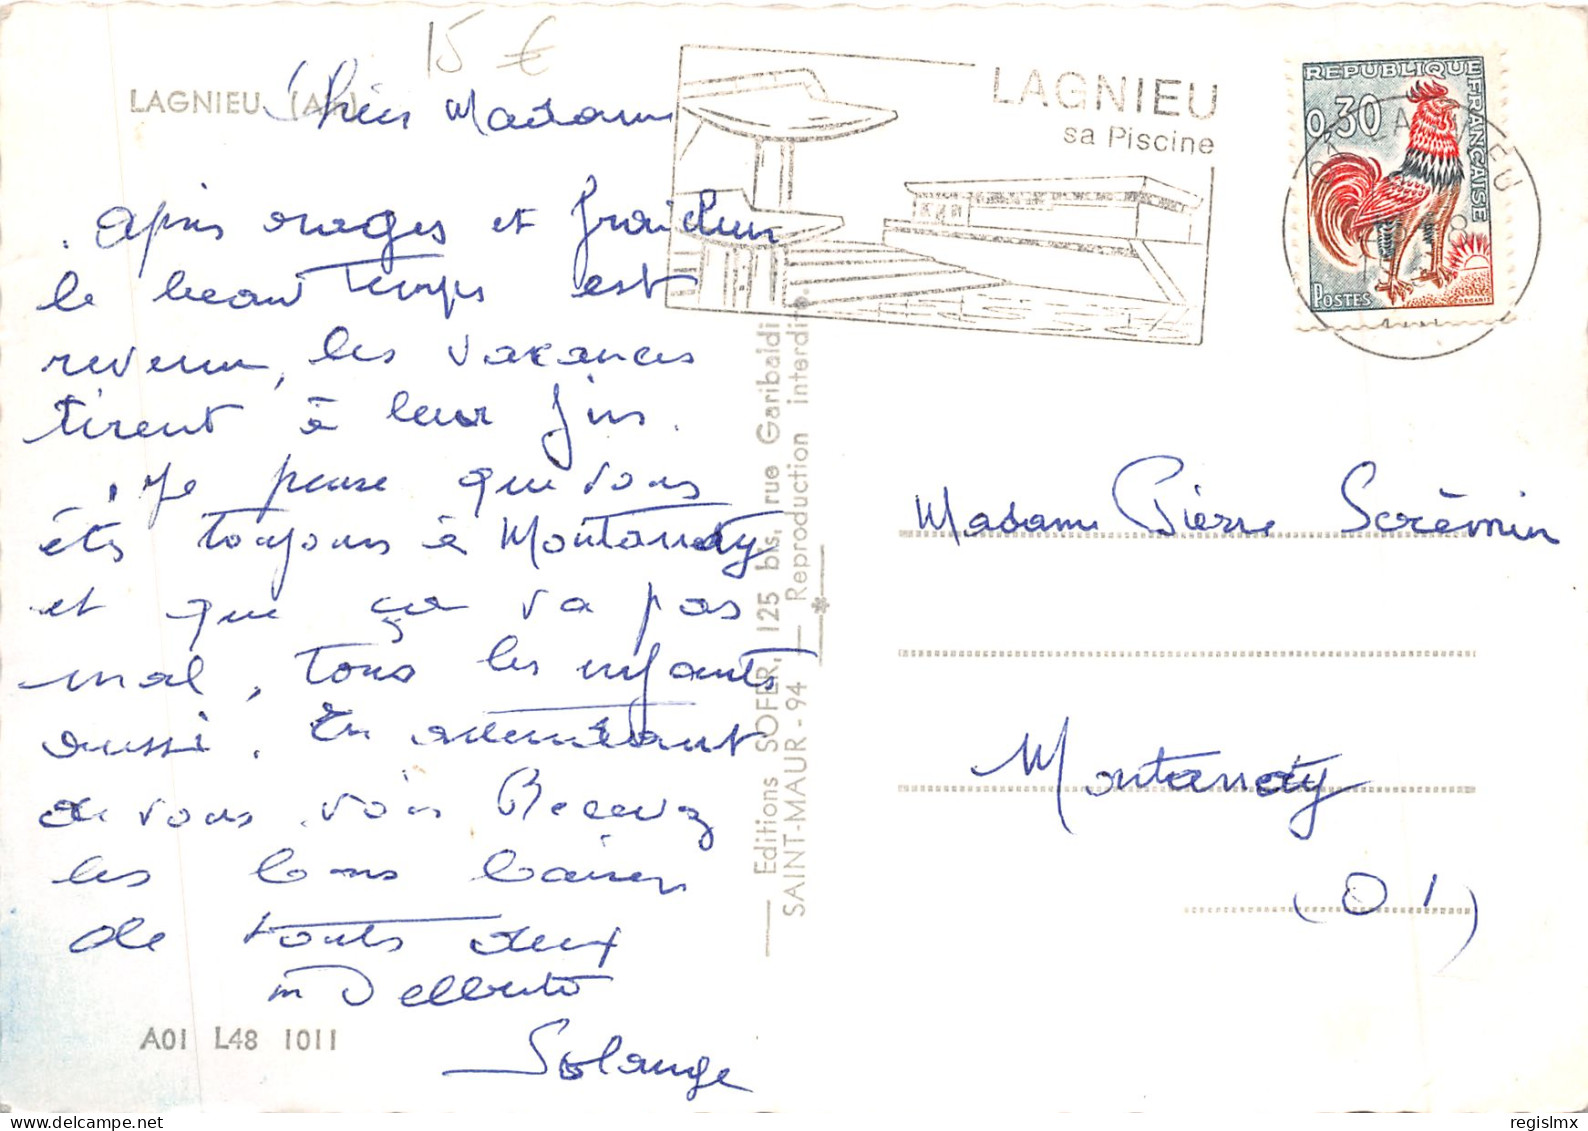 15 €
LAGNIEU (Ain)
Chère Madame
Après orages et fraîcheur
le beau temps est
revenu, les vacances
tirent à leur fin.
Je pense que vous
êtes toujours à Montanay
et que ça va pas
mal, tous les enfants
aussi. En attendant
de vous voir Recevez
les bons baisers
de toutes deux
m Delberto
Solange
A01 L48 1011
Editions SOFER, 125 bis, rue Garibaldi
SAINT-MAUR - 94 — Reproduction interdite.
LAGNIEU
sa Piscine
REPUBLIQUE FRANÇAISE
0,30
POSTES
DECARIS
LAGNIEU
AIN
Madame Pierre
Montanay
(01)
regislmx